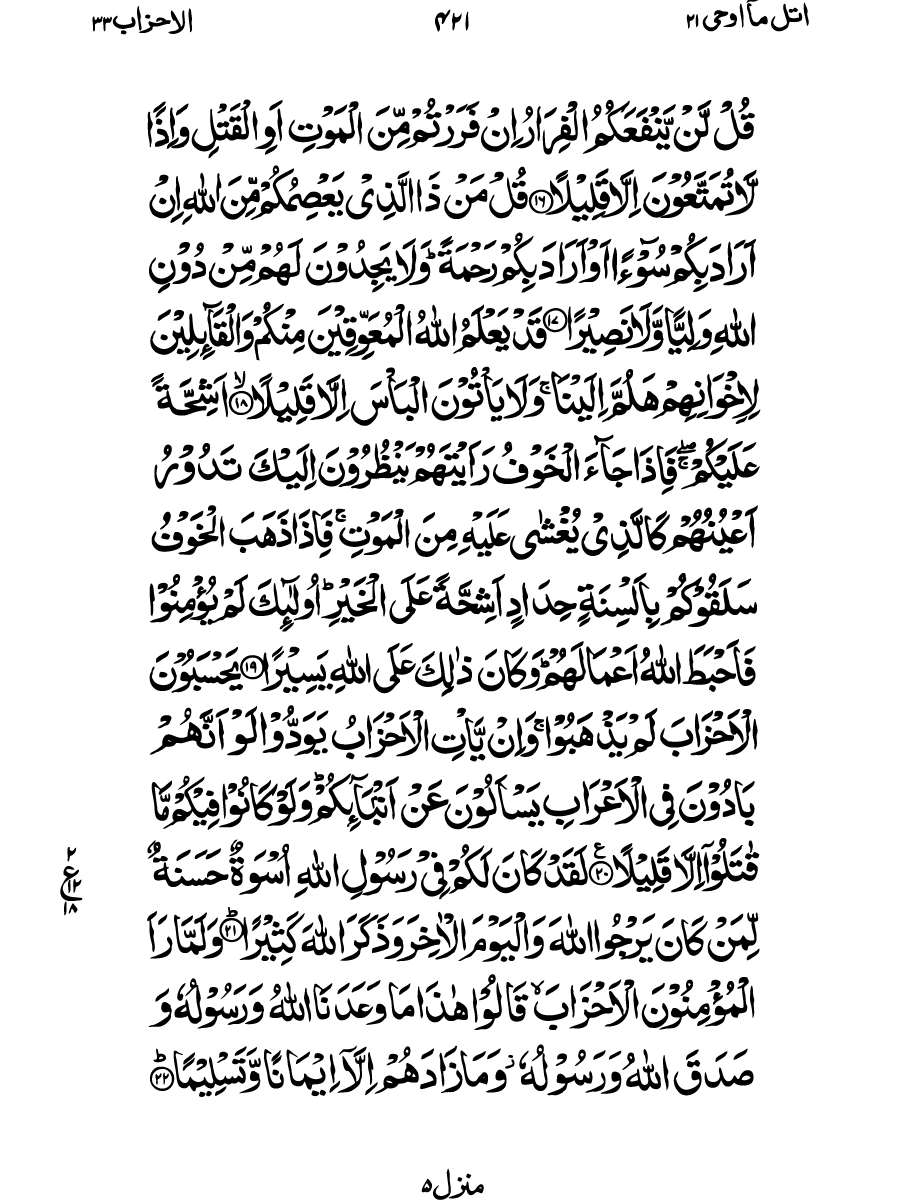 اتل مآ اوحی ۲۱
۴۲۱
الاحزاب ۳۳
قُلْ لَّنْ یَّنْفَعَكُمُ الْفِرَارُ اِنْ فَرَرْتُمْ مِّنَ الْمَوْتِ اَوِ الْقَتْلِ وَاِذًا
لَّا تُمَتَّعُوْنَ اِلَّا قَلِیْلًا ﴿۱۶﴾ قُلْ مَنْ ذَا الَّذِیْ یَعْصِمُكُمْ مِّنَ اللهِ اِنْ
اَرَادَ بِكُمْ سُوْٓءًا اَوْ اَرَادَ بِكُمْ رَحْمَةً ؕ وَلَا یَجِدُوْنَ لَهُمْ مِّنْ دُوْنِ
اللهِ وَلِیًّا وَّلَا نَصِیْرًا ﴿۱۷﴾ قَدْ یَعْلَمُ اللهُ الْمُعَوِّقِیْنَ مِنْكُمْ وَالْقَآىِٕلِیْنَ
لِاِخْوَانِهِمْ هَلُمَّ اِلَیْنَا ۚ وَلَا یَاْتُوْنَ الْبَاْسَ اِلَّا قَلِیْلًا ﴿۱۸﴾ۙ اَشِحَّةً
عَلَیْكُمْ ۖۚ فَاِذَا جَآءَ الْخَوْفُ رَاَیْتَهُمْ یَنْظُرُوْنَ اِلَیْكَ تَدُوْرُ
اَعْیُنُهُمْ كَالَّذِیْ یُغْشٰی عَلَیْهِ مِنَ الْمَوْتِ ۚ فَاِذَا ذَهَبَ الْخَوْفُ
سَلَقُوْكُمْ بِاَلْسِنَةٍ حِدَادٍ اَشِحَّةً عَلَی الْخَیْرِ ؕ اُولٰٓىِٕكَ لَمْ یُؤْمِنُوْا
فَاَحْبَطَ اللهُ اَعْمَالَهُمْ ؕ وَكَانَ ذٰلِكَ عَلَی اللهِ یَسِیْرًا ﴿۱۹﴾ یَحْسَبُوْنَ
الْاَحْزَابَ لَمْ یَذْهَبُوْا ۚ وَاِنْ یَّاْتِ الْاَحْزَابُ یَوَدُّوْا لَوْ اَنَّهُمْ
بَادُوْنَ فِی الْاَعْرَابِ یَسْاَلُوْنَ عَنْ اَنْۢبَآىِٕكُمْ ؕ وَلَوْ كَانُوْا فِیْكُمْ مَّا
قٰتَلُوْۤا اِلَّا قَلِیْلًا ﴿۲۰﴾ۧ لَقَدْ كَانَ لَكُمْ فِیْ رَسُوْلِ اللهِ اُسْوَةٌ حَسَنَةٌ
۲
ع
۱۲
۱۸
لِّمَنْ كَانَ یَرْجُوا اللهَ وَالْیَوْمَ الْاٰخِرَ وَذَكَرَ اللهَ كَثِیْرًا ﴿۲۱﴾ؕ وَلَمَّا رَاَ
الْمُؤْمِنُوْنَ الْاَحْزَابَ ۙ قَالُوْا هٰذَا مَا وَعَدَنَا اللهُ وَرَسُوْلُهٗ وَ
صَدَقَ اللهُ وَرَسُوْلُهٗ ؗ وَمَا زَادَهُمْ اِلَّاۤ اِیْمَانًا وَّتَسْلِیْمًا ﴿۲۲﴾ؕ
منزل ۵